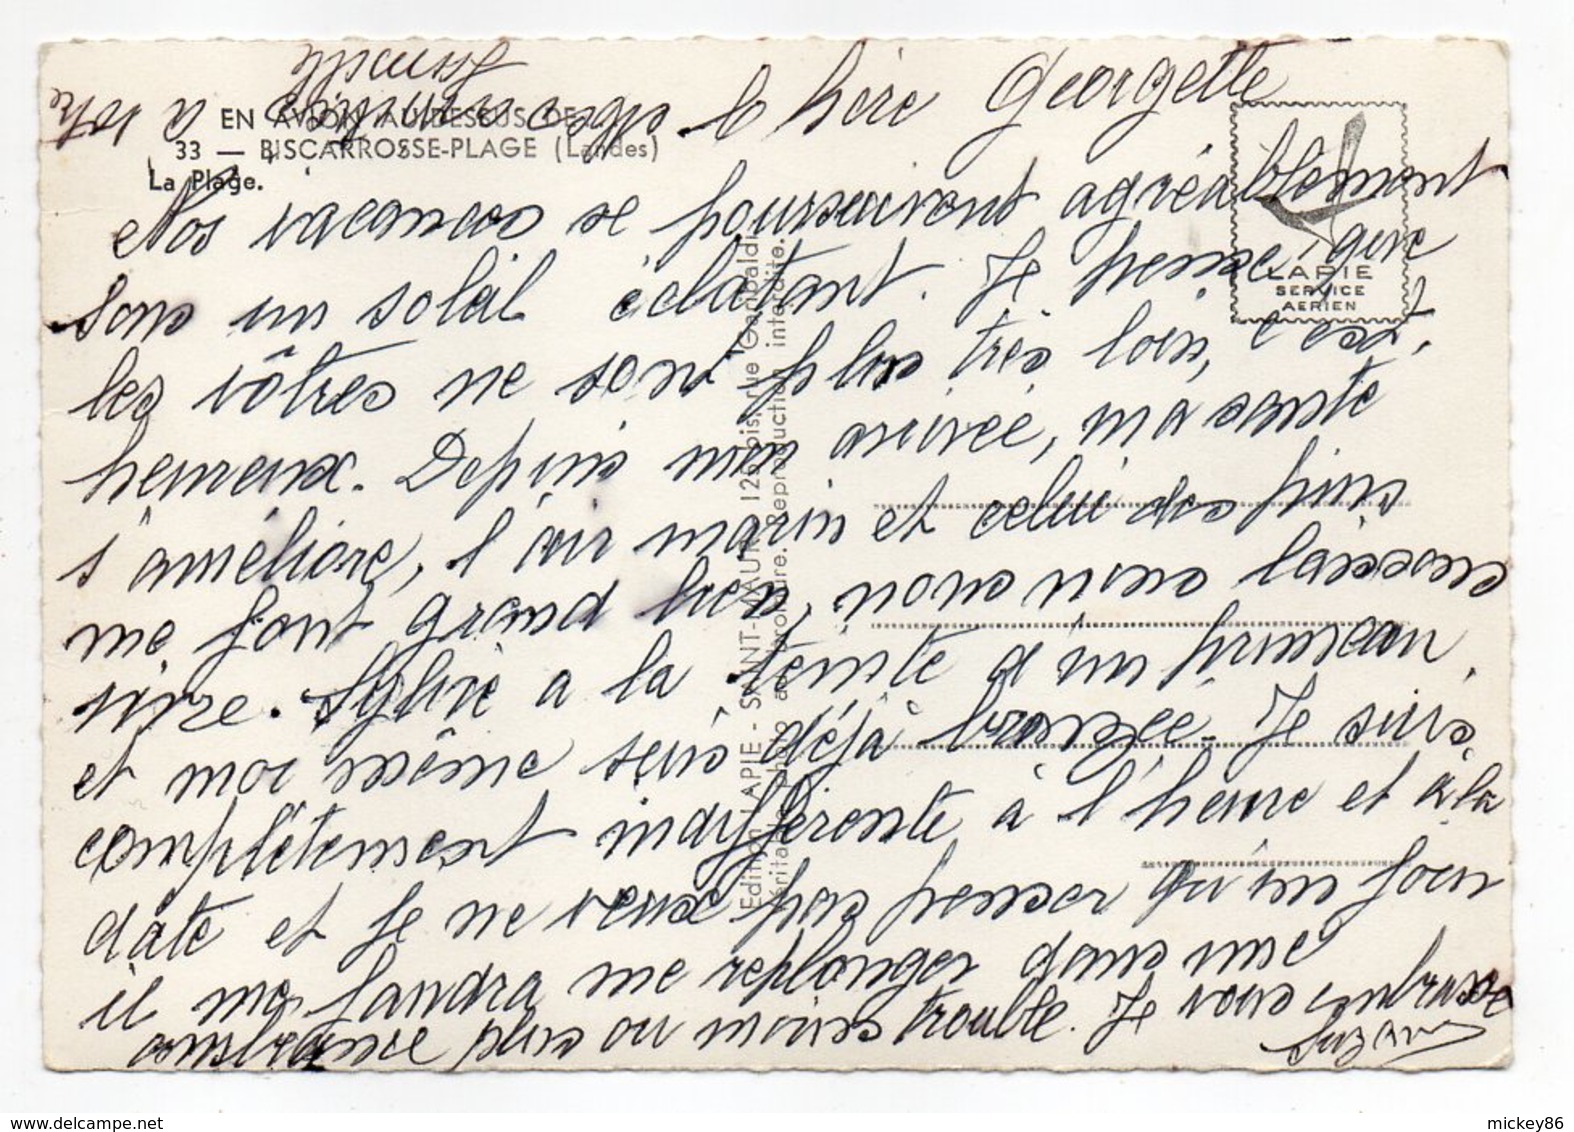 Chère Georgette
EN AVION AU-DESSUS DE...
33 — BISCARROSSE-PLAGE (Landes)
La Plage.
Nos vacances se poursuivent agréablement
sous un soleil éclatant. Je pense que
les vôtres ne sont plus très loin, c'est
heureux. Depuis mon arrivée, ma santé
s'améliore, l'air marin et celui des pins
me font grand bien, nous nous laissons
vivre. Sylvie a la teinte d'un pruneau
et moi même suis déjà bronzée. Je suis
complètement indifférente à l'heure et à la
date et je ne veux pas penser qu'un jour
il me faudra me replonger dans une
ambiance plus ou moins trouble. Je vous embrasse
Suzanne
amitiés à votre
famille
LAPIE
SERVICE
AERIEN
Edition LAPIE - SAINT-MAUR 126 bis, rue Garibaldi
Véritable photo au bromure. Reproduction interdite.
mickey86